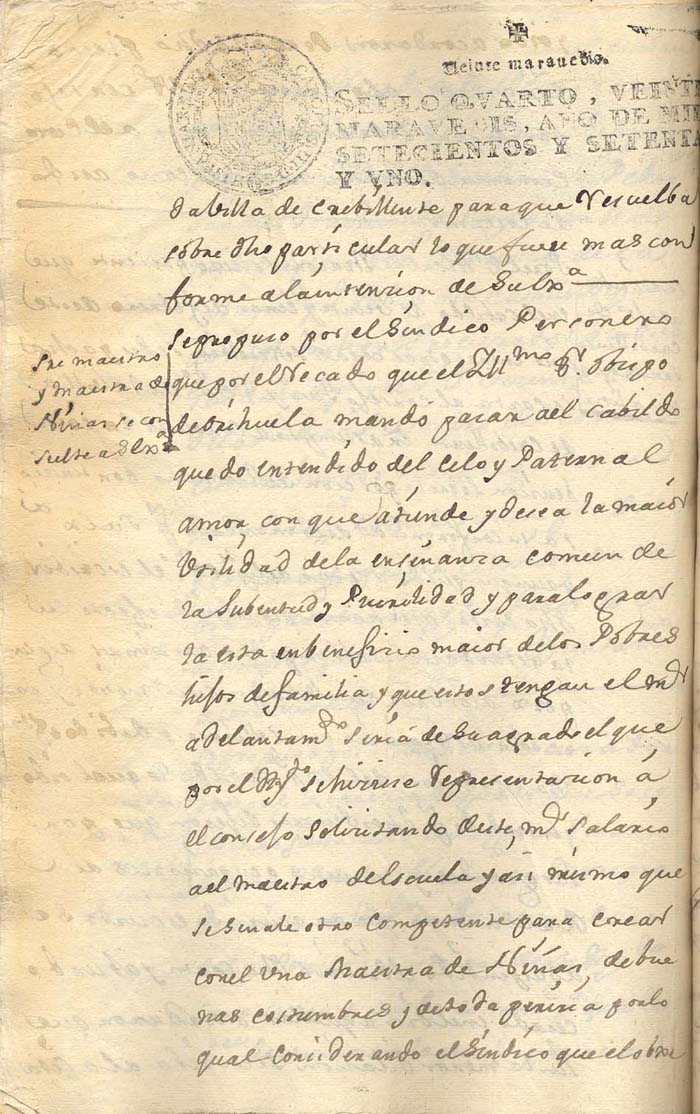 Veinte maravedis.
SELLO QVARTO, VEINTE
MARAVEDIS, AÑO DE MIL
SETECIENTOS Y SETENTA
Y VNO.
da Villa de Crebillente para que Resuelba
sobre dho particular lo que fuere mas con
forme a la intencion de Su Exª
Se propuso por el Sindico Personero
Sre maestro
y maestra de
Niñas se con
sulte a S Exª
que por el Recado que el Illmo Sr. obispo
de Orihuela mandó pasar a el Cabildo
quedo entendido del Celo y Paternal
amor con que atiende y desea la maior
Utilidad de la enseñanza comun de
la Jubentud y Puirilidad y para lograr
la esta en beneficio maior de los Pobres
hijos de familia y que estos tengan el mr
adelantamto seria de Su agrado el que
por el se hiciese Representacion á
el consejo Solicitando deste mr Salario
a el maestro de escuela y asi mismo que
se Senale otro Competente para crear
con el Una Maestra de Niñas, de bue
nas costumbres y de toda pericia por lo
qual Considerando el Sindico que el